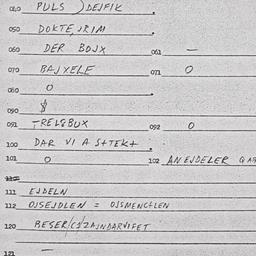 040 PULS ) DEJFIK
050 DOKTE, JRIM
060 DER BOJX 061 —
070 BAJXELE 071 0
080 0
090 $
091 TRELSBUX 092 0
100 DAR VI A STEKT
101 0 102 AN EJDELER
110
111 EJDELN
112 OJSEJDLEN = OJSMENCHLEN
120 BESER/
121 —